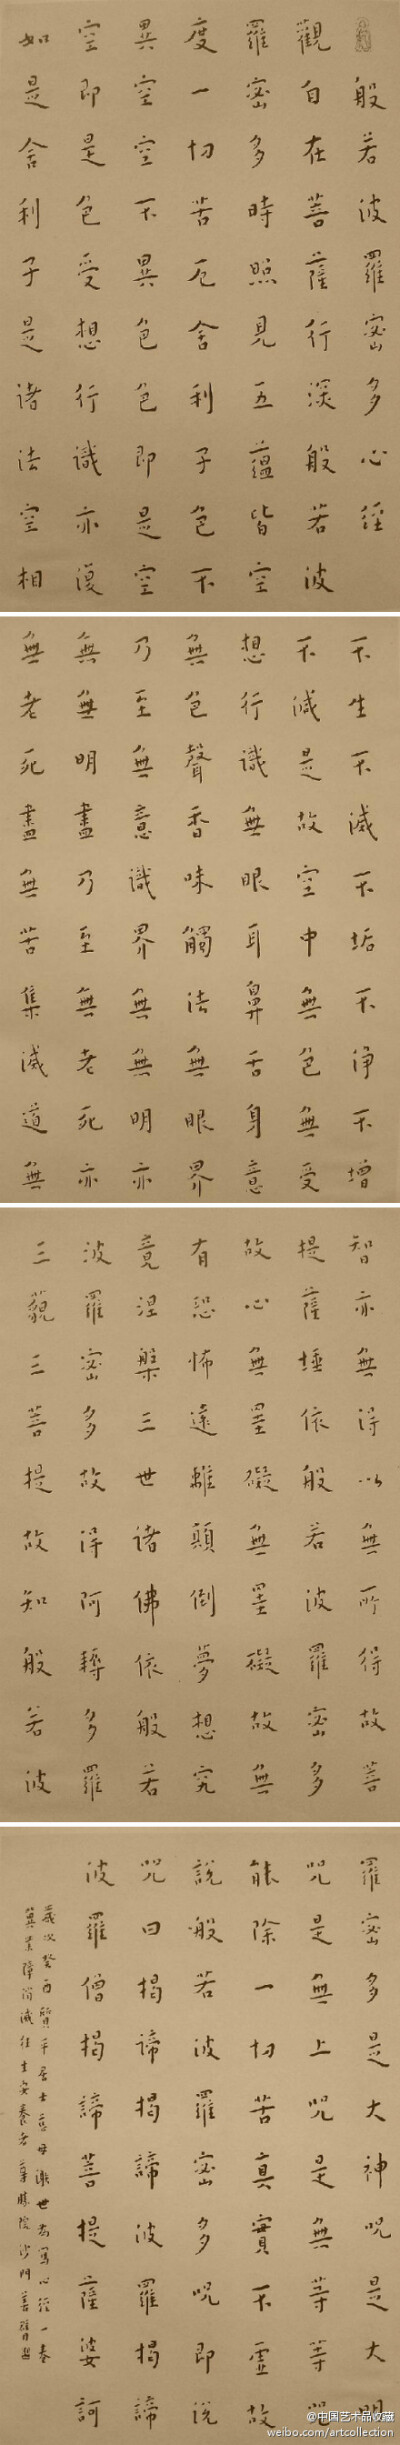 般若波羅蜜多心經
觀自在菩薩行深般若波
羅蜜多時照見五蘊皆空
度一切苦厄舍利子色不
異空空不異色色即是空
空即是色受想行識亦復
如是舍利子是諸法空相
不生不滅不垢不淨不增
不減是故空中無色無受
想行識無眼耳鼻舌身意
無色聲香味觸法無眼界
乃至無意識界無無明亦
無無明盡乃至無老死亦
無老死盡無苦集滅道無
智亦無得以無所得故菩
提薩埵依般若波羅蜜多
故心無罣礙無罣礙故無
有恐怖遠離顛倒夢想究
竟涅槃三世諸佛依般若
波羅蜜多故得阿耨多羅
三藐三菩提故知般若波
羅蜜多是大神呪是大明
呪是無上呪是無等等呪
能除一切苦真實不虛故
說般若波羅蜜多呪即說
呪曰揭諦揭諦波羅揭諦
波羅僧揭諦菩提薩婆訶
歲次癸酉質平居士亡母謝世為寫心經一卷
冀業障消滅往生安養者尊勝院沙門善臂
@中国艺术品收藏
weibo.com/artcollection